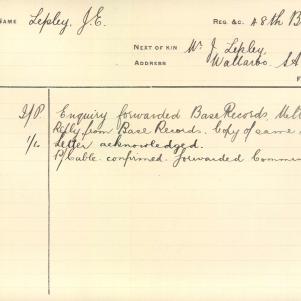 NAME Lepley, J.E. REG. &C. 48th B
NEXT OF KIN Mr J. Lepley,
ADDRESS Wallaroo. S.A
F
Enquiry forwarded Base Records, Melb
Reply from Base Records. Copy of same
1/2 Letter acknowledged.
P/Cable confirmed. forwarded Comm